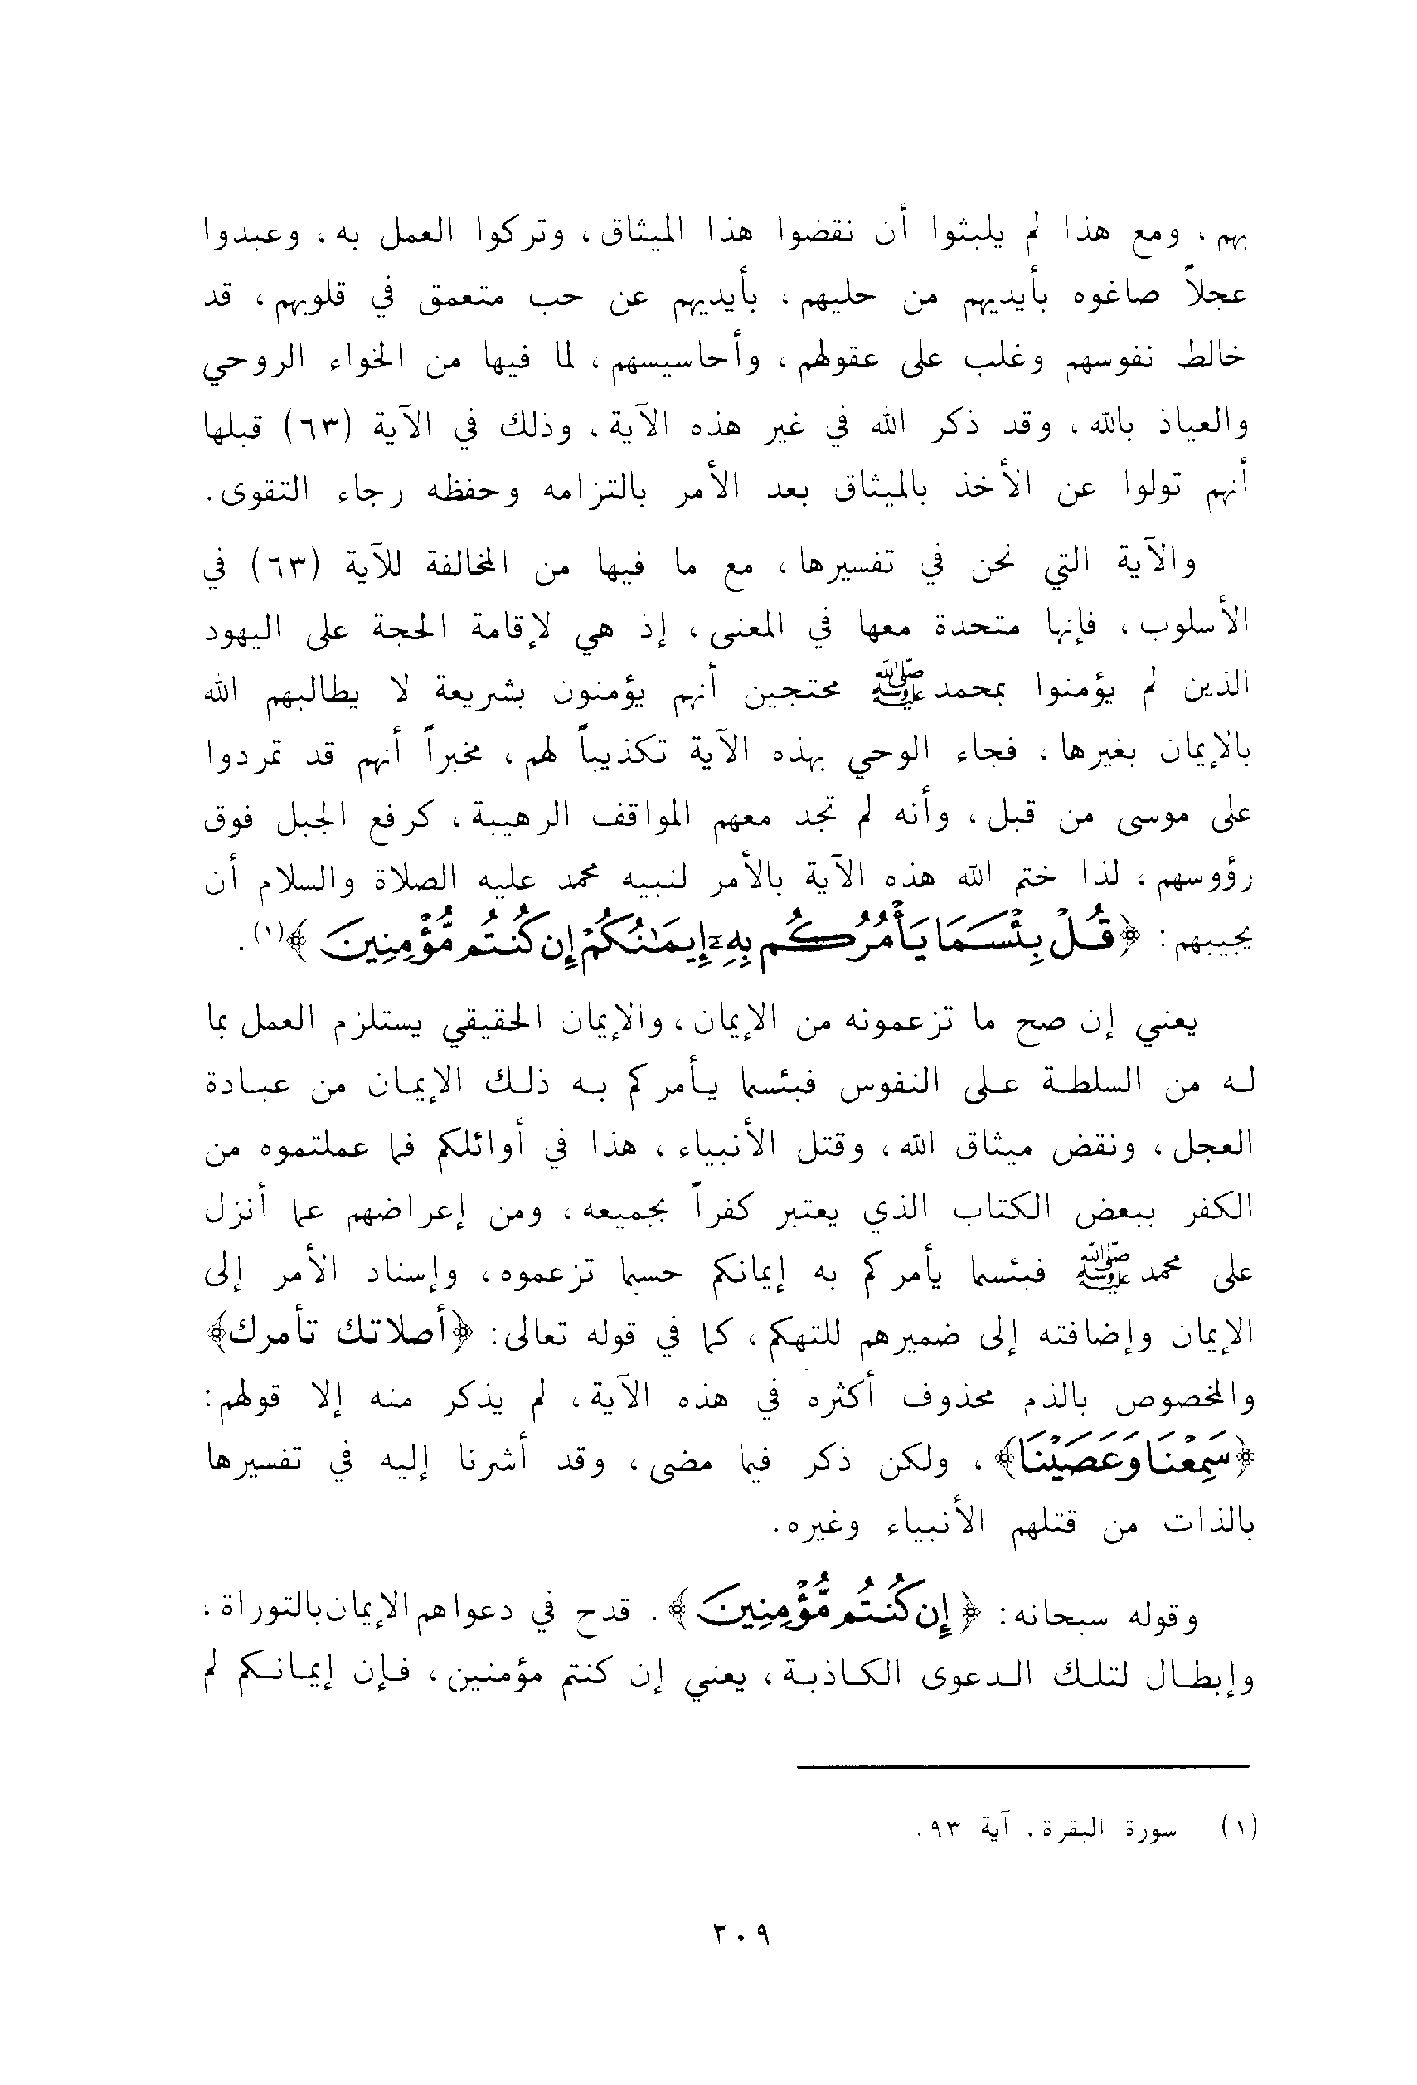 بهم، ومع هذا لم يلبثوا أن نقضوا هذا الميثاق، وتركوا العمل به، وعبدوا
عجلاً صاغوه بأيديهم من حليهم، بأيديهم عن حب متعمق في قلوبهم، قد
خالط نفوسهم وغلب على عقولهم، وأحاسيسهم، لما فيها من الخواء الروحي
والعياذ بالله، وقد ذكر الله في غير هذه الآية، وذلك في الآية (٦٣) قبلها
أنهم تولوا عن الأخذ بالميثاق بعد الأمر بالتزامه وحفظه رجاء التقوى.
والآية التي نحن في تفسيرها، مع ما فيها من المخالفة للآية (٦٣) في
الأسلوب، فإنها متحدة معها في المعنى، إذ هي لإقامة الحجة على اليهود
الذين لم يؤمنوا بمحمد ﷺ محتجين أنهم يؤمنون بشريعة لا يطالبهم الله
بالإيمان بغيرها، فجاء الوحي بهذه الآية تكذيباً لهم، مخبراً أنهم قد تمردوا
على موسى من قبل، وأنه لم تجد معهم المواقف الرهيبة، كرفع الجبل فوق
رؤوسهم، لذا ختم الله هذه الآية بالأمر لنبيه محمد عليه الصلاة والسلام أن
يجيبهم: ﴿قُلْ بِئْسَمَا يَأْمُرُكُم بِهِۦٓ إِيمَـٰنُكُمْ إِن كُنتُم مُّؤْمِنِينَ﴾(١).
يعني إن صح ما تزعمونه من الإيمان، والإيمان الحقيقي يستلزم العمل بما
له من السلطة على النفوس فبئسما يأمركم به ذلك الإيمان من عبادة
العجل، ونقض ميثاق الله، وقتل الأنبياء، هذا في أوائلكم فما عملتموه من
الكفر ببعض الكتاب الذي يعتبر كفراً بجميعه، ومن إعراضهم عما أنزل
على محمد ﷺ فبئسما يأمركم به إيمانكم حسبما تزعموه، وإسناد الأمر إلى
الإيمان وإضافته إلى ضميرهم للتهكم، كما في قوله تعالى: ﴿أصلاتك تأمرك﴾
والمخصوص بالذم محذوف أكثره في هذه الآية، لم يذكر منه إلا قولهم:
﴿سَمِعْنَا وَعَصَيْنَا﴾، ولكن ذكر فيما مضى، وقد أشرنا إليه في تفسيرها
بالذات من قتلهم الأنبياء وغيره.
وقوله سبحانه: ﴿إِن كُنتُم مُّؤْمِنِينَ﴾. قدح في دعواهم الإيمان بالتوراة،
وإبطال لتلك الدعوى الكاذبة، يعني إن كنتم مؤمنين، فإن إيمانكم لم
(١) سورة البقرة، آية ٩٣.
٢٠٩